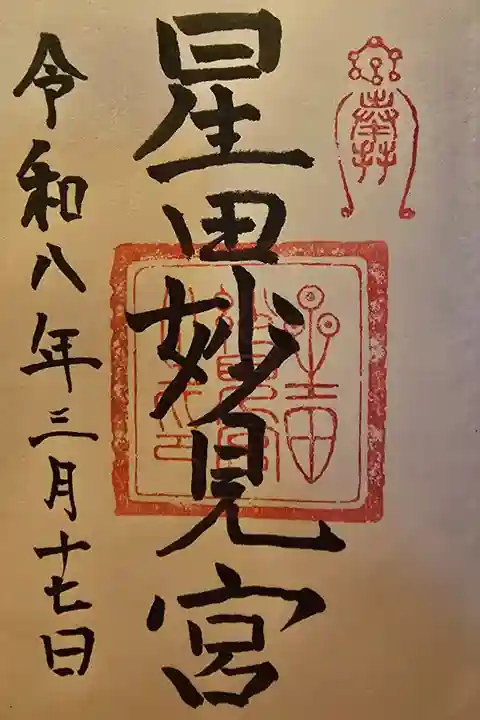 星田妙見宮
令和八年三月十七日